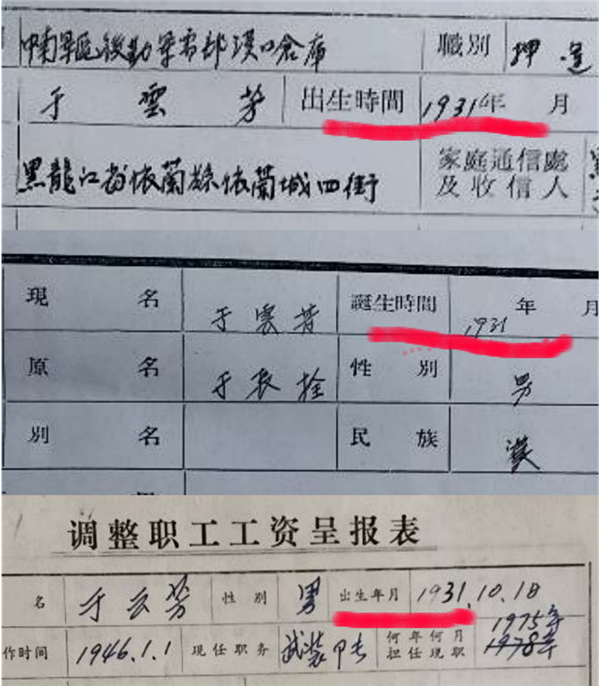 中南軍區後勤軍需部漢口倉庫 職別 押運
于雲芳 出生時間 1931年 月
黑龍江省依蘭縣依蘭城四街 家庭通信處
及收信人
現名 于雲芳 誕生時間 1931 年 月
原名 于長拴 性別 男
別名 民族 漢
调整职工工资呈报表
名 于云芳 性别 男 出生年月 1931.10.18
作时间 1946.1.1 现任职务 武装 何年何月 1975年
担任现职 1978年